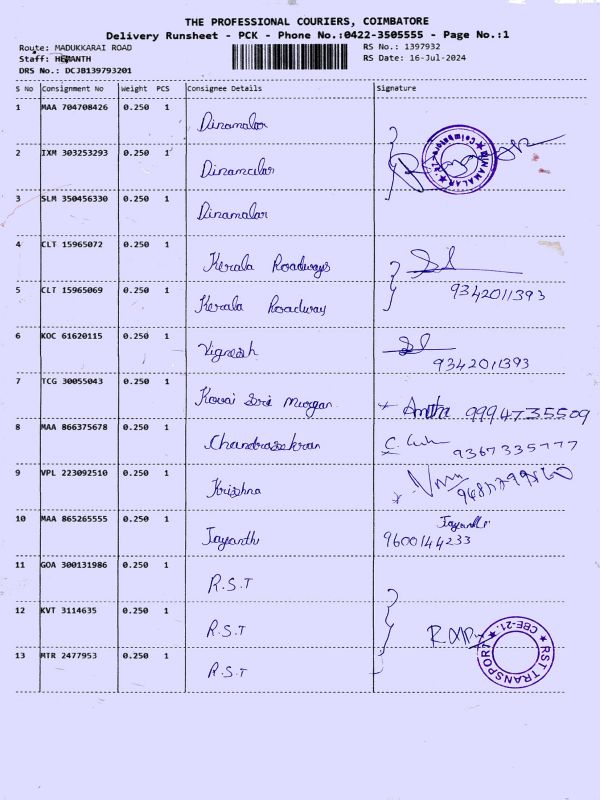 THE PROFESSIONAL COURIERS, COIMBATORE
Delivery Runsheet - PCK - Phone No.:0422-3505555 - Page No.:1
Route: MADUKKARAI ROAD RS No.: 1397932
Staff: HEMANTH RS Date: 16-Jul-2024
DRS No.: DCJB139793201
S No Consignment No Weight PCS Consignee Details Signature
1 MAA 704708426 0.250 1 Dinamalar
2 IXM 303253293 0.250 1 Dinamalar
DINAMALAR ★ Coimbatore
3 SLM 350456330 0.250 1 Dinamalar
4 CLT 15965072 0.250 1 Kerala Roadways
5 CLT 15965069 0.250 1 Kerala Roadway 9342011393
6 KOC 61620115 0.250 1 Vignesh 9342011393
7 TCG 30055043 0.250 1 Kovai Sri Murgan Amtha 9994735509
8 MAA 866375678 0.250 1 Chandrasekran 9367335777
9 VPL 223092510 0.250 1 Krishna
10 MAA 865265555 0.250 1 Jayanthi Jayanthi
9600144233
11 GOA 300131986 0.250 1 R.S.T
12 KVT 3114635 0.250 1 R.S.T
RST TRANSPORT ★ CBE-21. ★
13 MTR 2477953 0.250 1 R.S.T